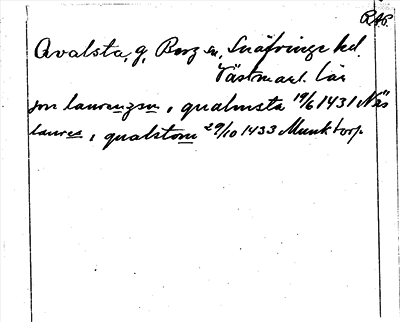 RAP.
Qvalsta, g, Berg sn, Snäfringe hd.
Västmanl. län
jon laurenzson, i qualmsta 19/6 1431 Näs
laures, i qualstom 29/10 1433 Munktorp